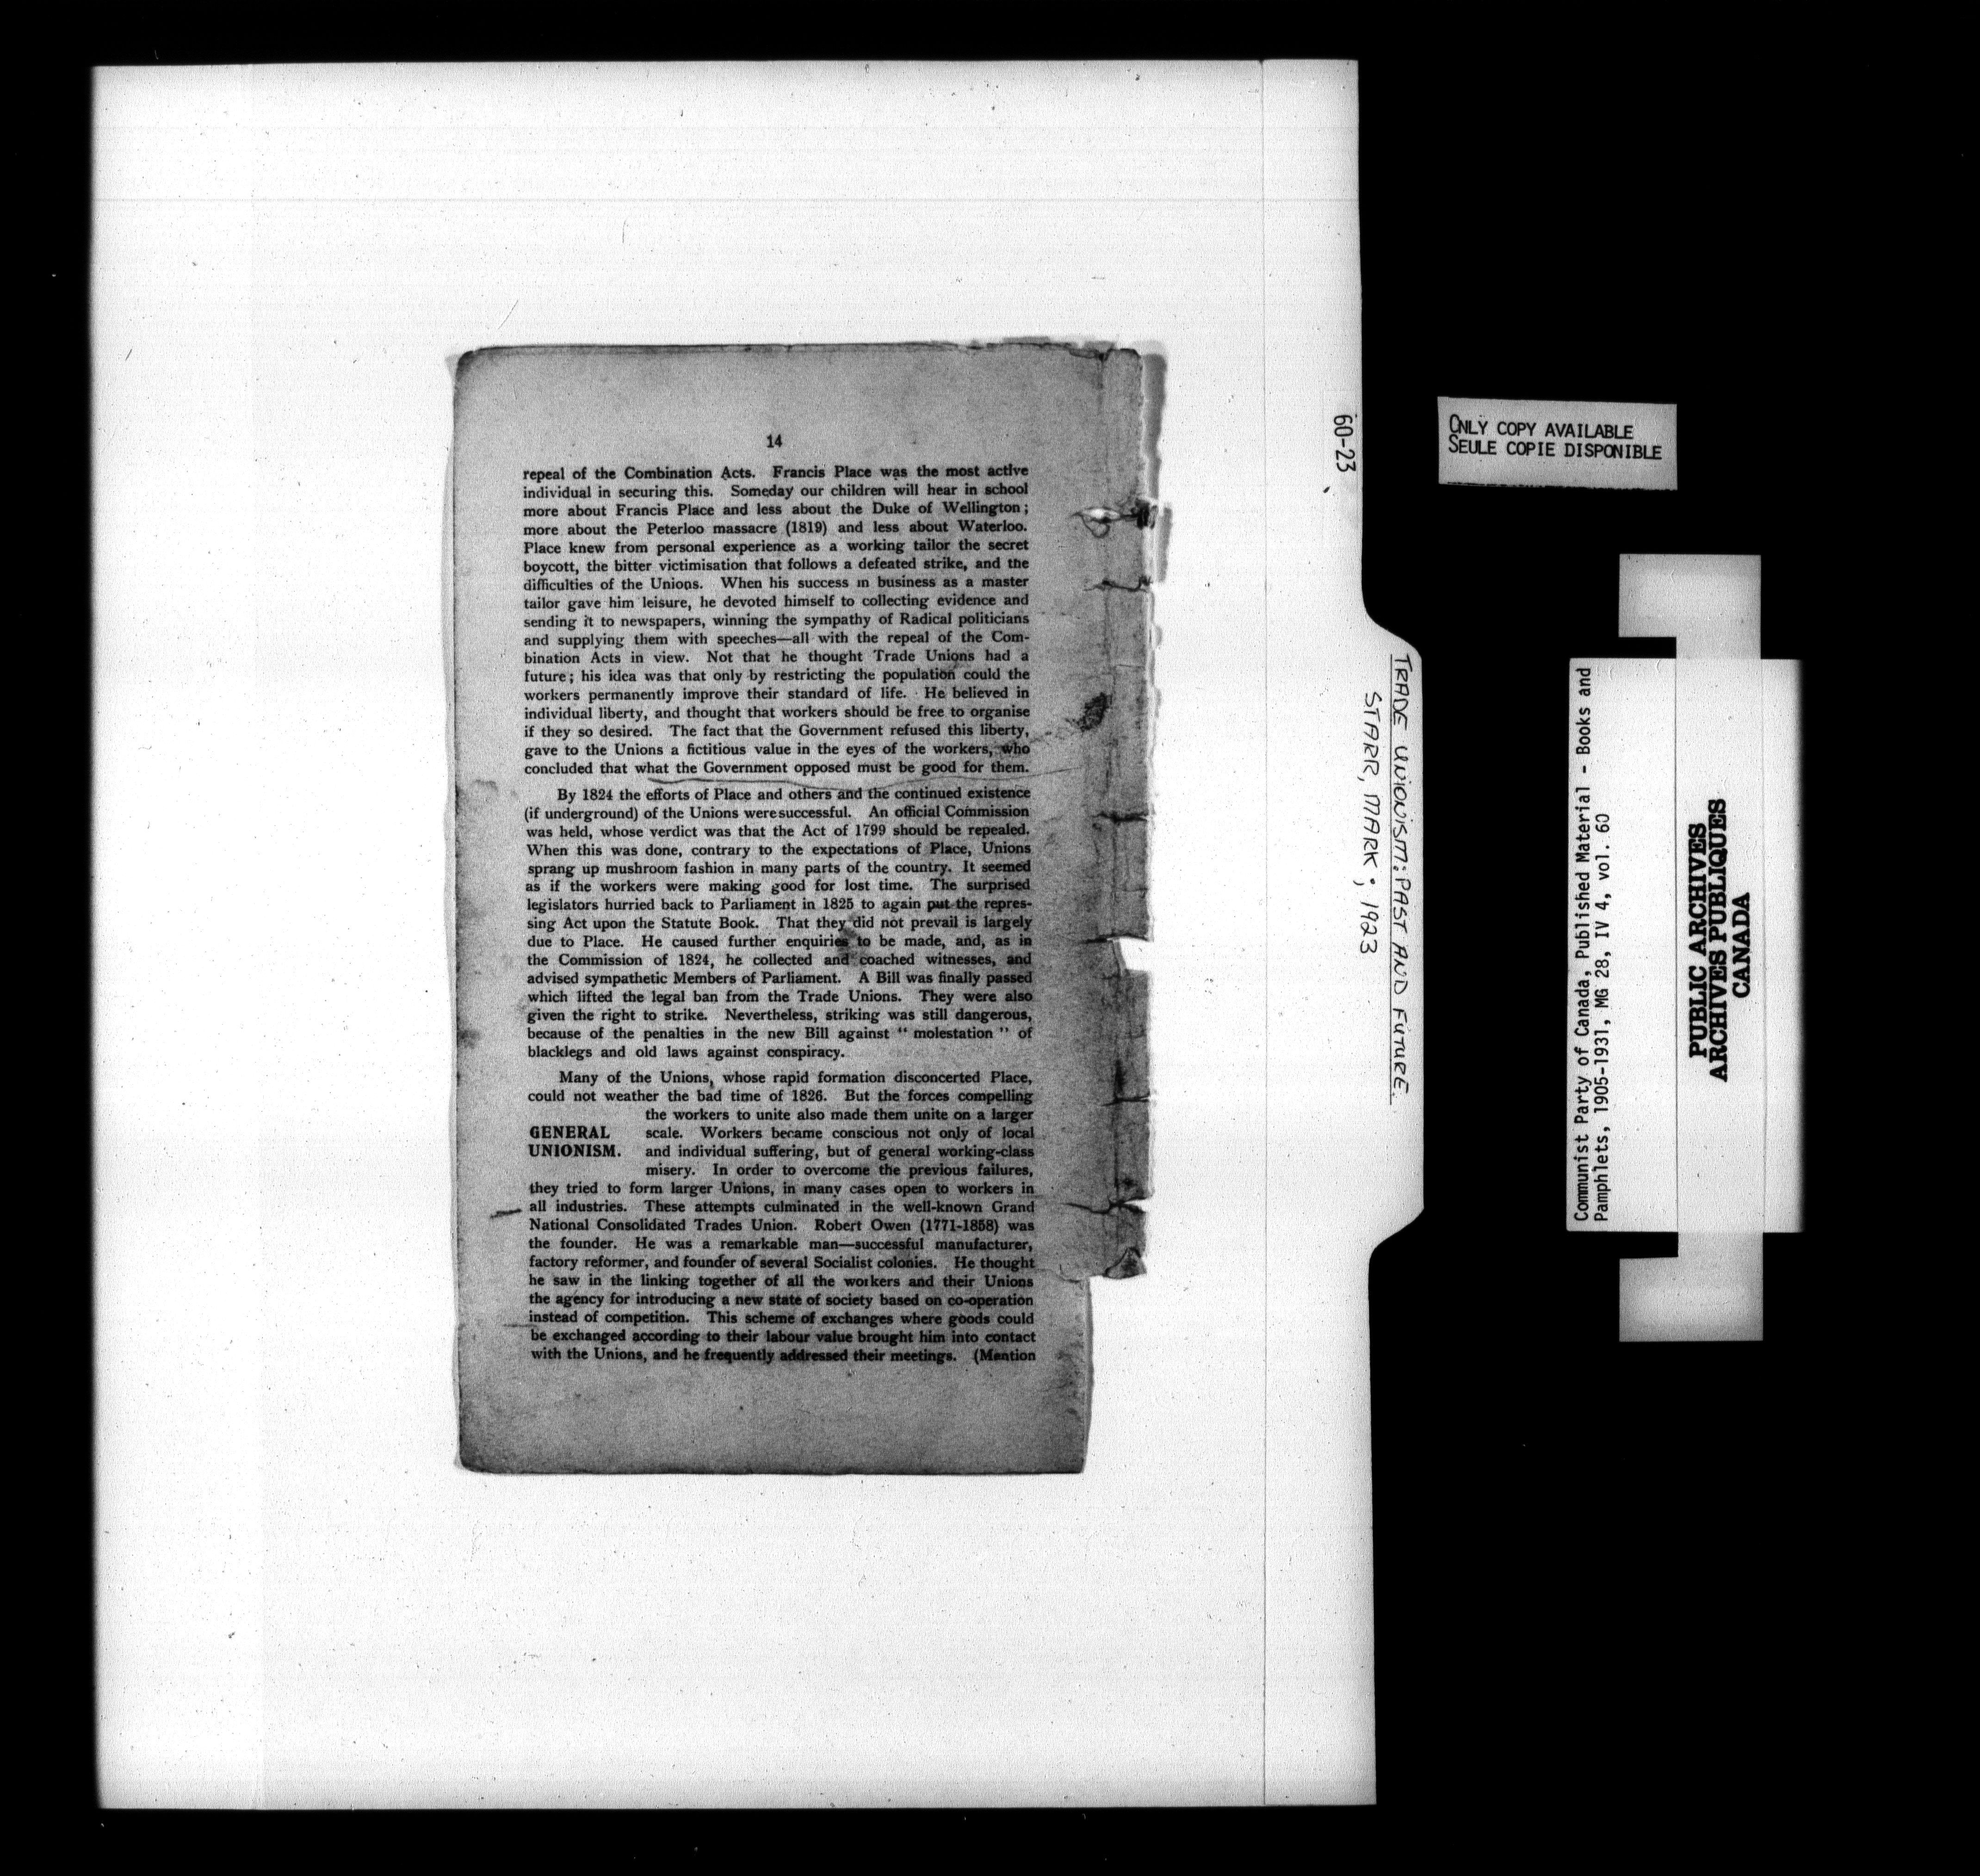 14
repeal of the Combination Acts. Francis Place was the most active
individual in securing this. Someday our children will hear in school
more about Francis Place and less about the Duke of Wellington;
more about the Peterloo massacre (1819) and less about Waterloo.
Place knew from personal experience as a working tailor the secret
boycott, the bitter victimisation that follows a defeated strike, and the
difficulties of the Unions. When his success in business as a master
tailor gave him leisure, he devoted himself to collecting evidence and
sending it to newspapers, winning the sympathy of Radical politicians
and supplying them with speeches—all with the repeal of the Com-
bination Acts in view. Not that he thought Trade Unions had a
future; his idea was that only by restricting the population could the
workers permanently improve their standard of life. He believed in
individual liberty, and thought that workers should be free to organise
if they so desired. The fact that the Government refused this liberty,
gave to the Unions a fictitious value in the eyes of the workers, who
concluded that what the Government opposed must be good for them.
By 1824 the efforts of Place and others and the continued existence
(if underground) of the Unions were successful. An official Commission
was held, whose verdict was that the Act of 1799 should be repealed.
When this was done, contrary to the expectations of Place, Unions
sprang up mushroom fashion in many parts of the country. It seemed
as if the workers were making good for lost time. The surprised
legislators hurried back to Parliament in 1825 to again put the repres-
sing Act upon the Statute Book. That they did not prevail is largely
due to Place. He caused further enquiries to be made, and, as in
the Commission of 1824, he collected and coached witnesses, and
advised sympathetic Members of Parliament. A Bill was finally passed
which lifted the legal ban from the Trade Unions. They were also
given the right to strike. Nevertheless, striking was still dangerous,
because of the penalties in the new Bill against " molestation " of
blacklegs and old laws against conspiracy.
Many of the Unions, whose rapid formation disconcerted Place,
could not weather the bad time of 1826. But the forces compelling
the workers to unite also made them unite on a larger
GENERAL scale. Workers became conscious not only of local
UNIONISM. and individual suffering, but of general working-class
misery. In order to overcome the previous failures,
they tried to form larger Unions, in many cases open to workers in
all industries. These attempts culminated in the well-known Grand
National Consolidated Trades Union. Robert Owen (1771-1858) was
the founder. He was a remarkable man—successful manufacturer,
factory reformer, and founder of several Socialist colonies. He thought
he saw in the linking together of all the workers and their Unions
the agency for introducing a new state of society based on co-operation
instead of competition. This scheme of exchanges where goods could
be exchanged according to their labour value brought him into contact
with the Unions, and he frequently addressed their meetings. (Mention
60-23
TRADE UNIONISM: PAST AND FUTURE.
STARR, MARK; 1923
ONLY COPY AVAILABLE
SEULE COPIE DISPONIBLE
Communist Party of Canada, Published Material - Books and
Pamphlets, 1905-1931, MG 28, IV 4, vol. 60
PUBLIC ARCHIVES
ARCHIVES PUBLIQUES
CANADA